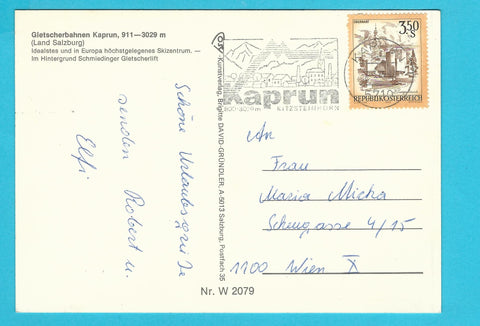 Gletscherbahnen Kaprun, 911—3029 m
(Land Salzburg)
Idealstes und in Europa höchstgelegenes Skizentrum. —
Im Hintergrund Schmiedinger Gletscherlift
Schöne Urlaubsgrüße
senden Robert u.
Elfi
Kunstverlag, Brigitte DAVID-GRÜNDLER, A-5013 Salzburg, Postfach 35
Kaprun
KITZSTEINHORN
3.50 S
REPUBLIK ÖSTERREICH
An
Frau
Maria Micka
4/15
1100 Wien X
Nr. W 2079